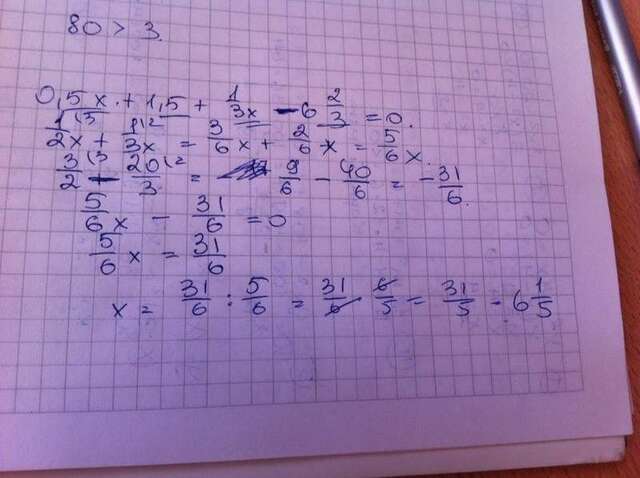 80 > 3.
0,5x + 1,5 + 1/3x - 6 2/3 = 0.
1/2x + 1/3x = 3/6x + 2/6x = 5/6x.
3/2 - 20/3 = 9/6 - 40/6 = -31/6.
5/6x - 31/6 = 0
5/6x = 31/6
x = 31/6 : 5/6 = 31/6 · 6/5 = 31/5 = 6 1/5